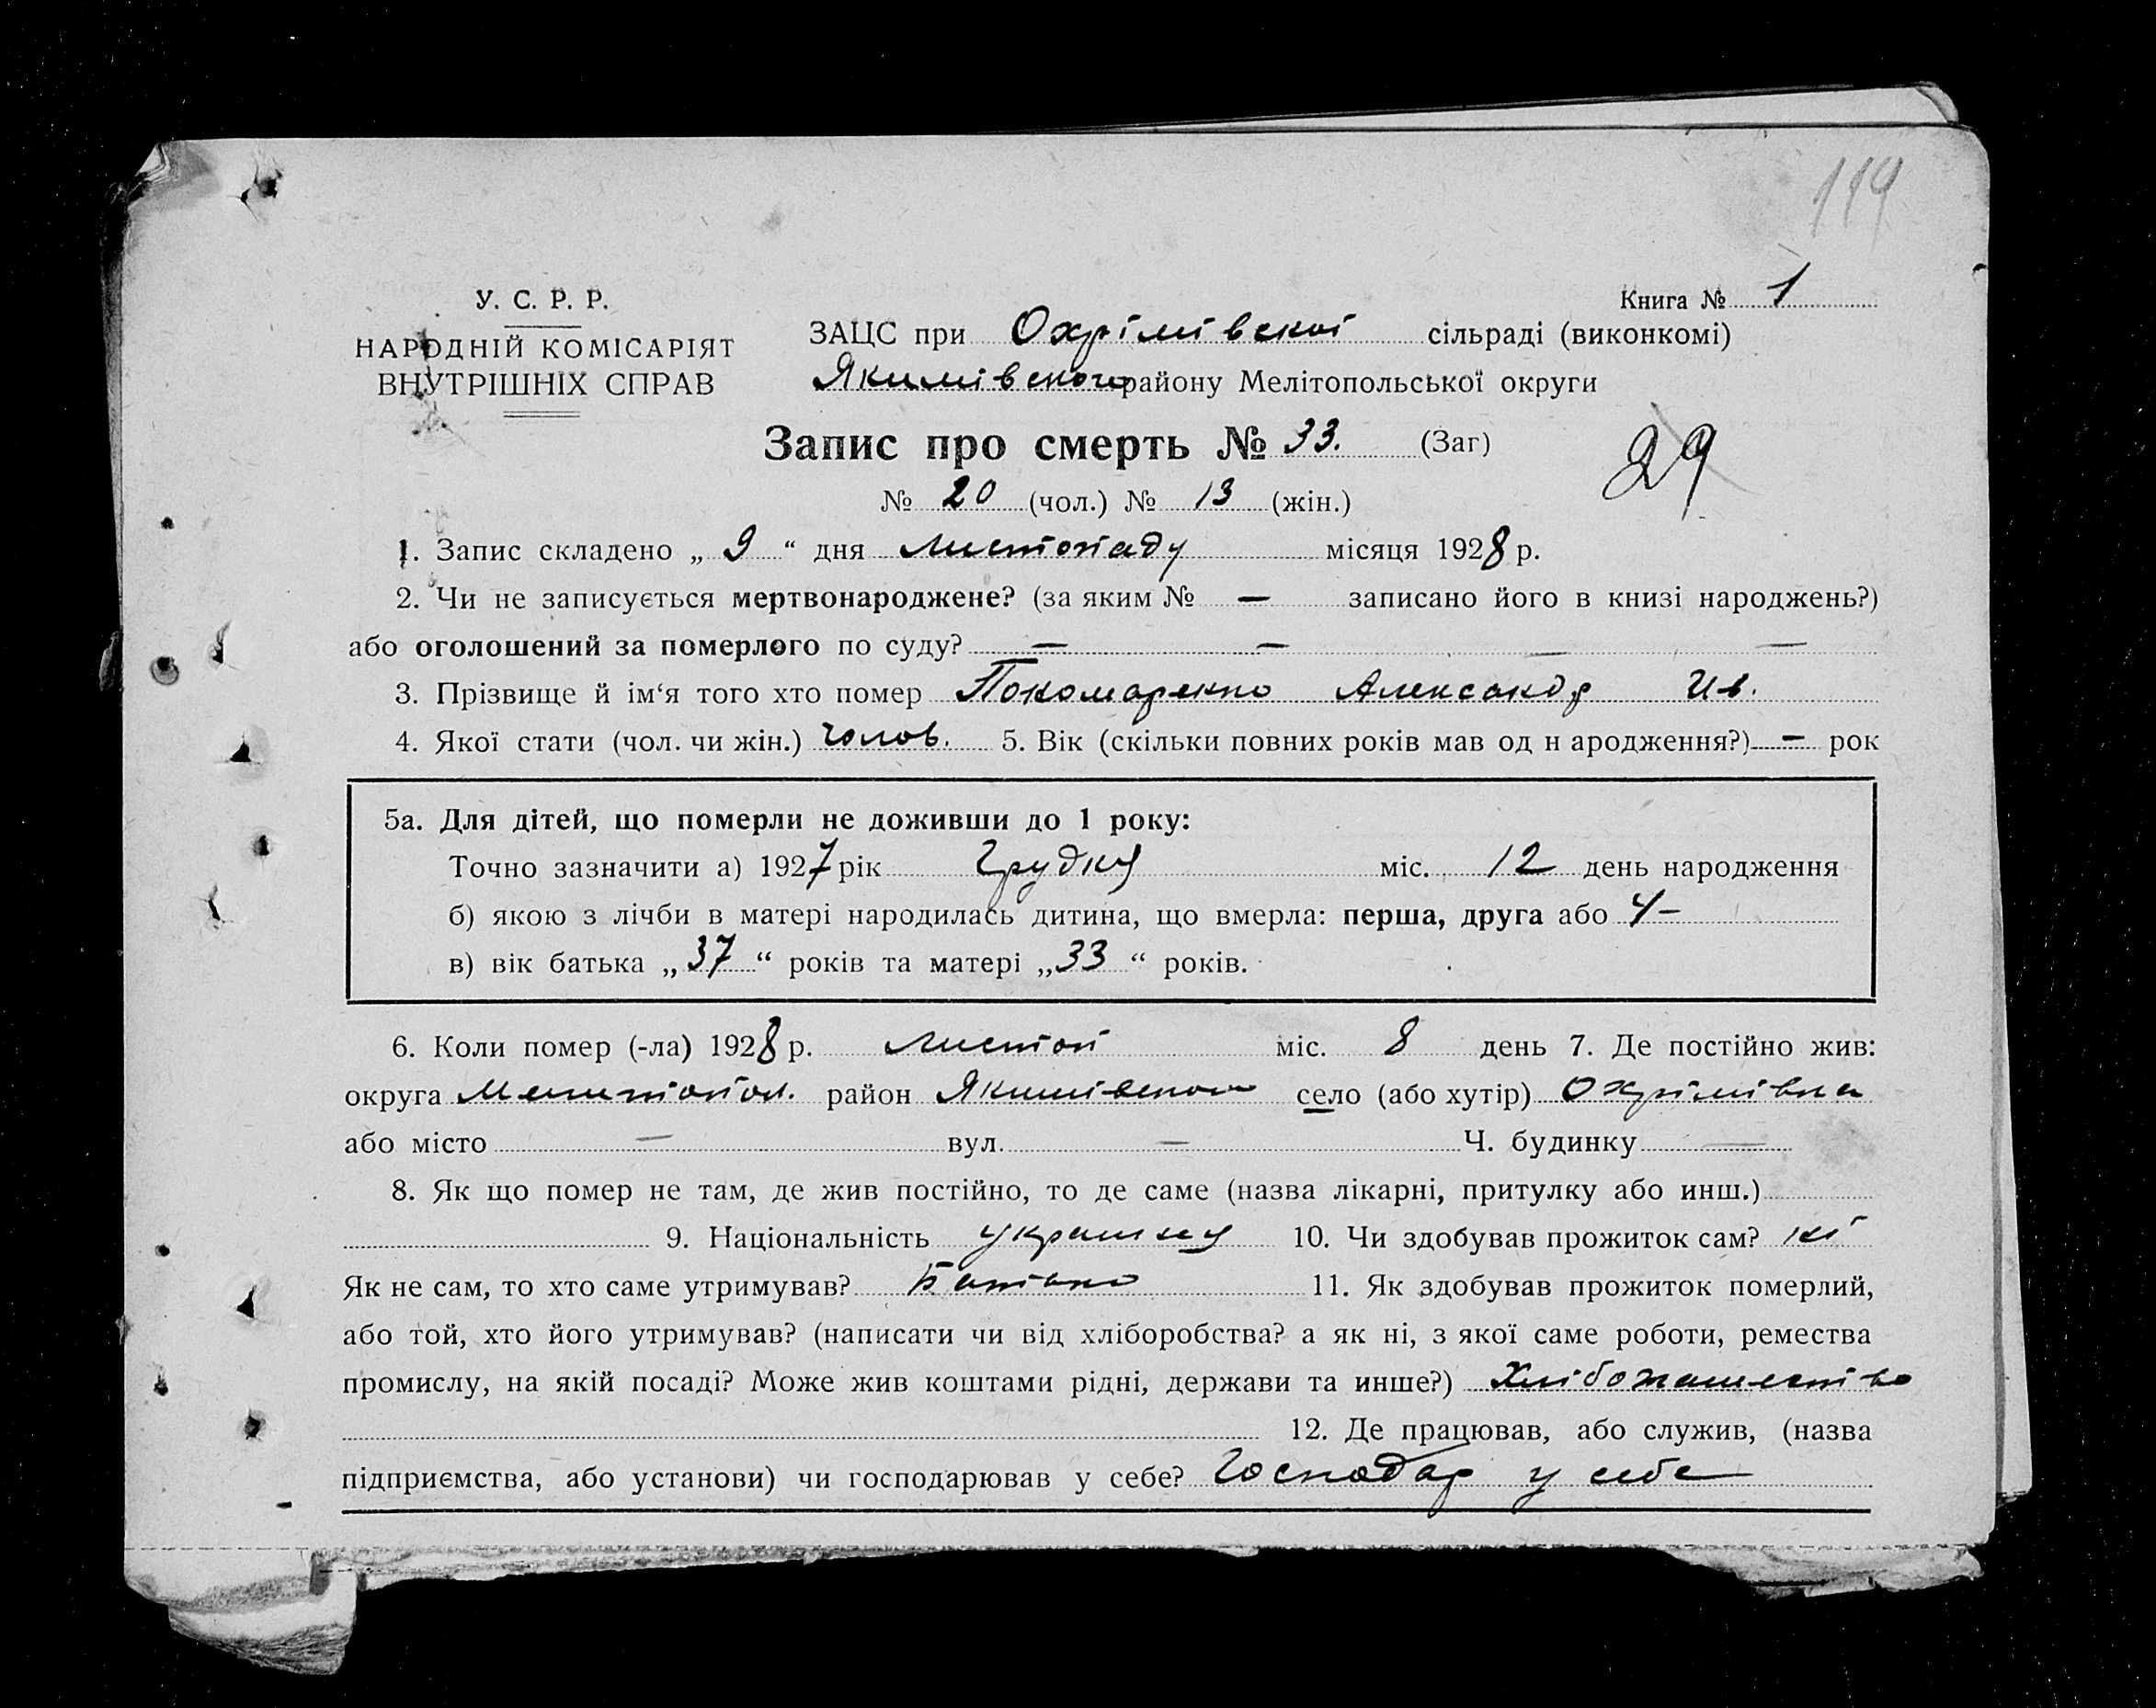 119
У. С. Р. Р.
НАРОДНІЙ КОМІСАРІЯТ
ВНУТРІШНІХ СПРАВ
Книга № 1
ЗАЦС при Охрімівскої сільраді (виконкомі)
Якимівского району Мелітопольської округи
Запис про смерть № 33. (Заг)
29
№ 20 (чол.) № 13 (жін.)
1. Запис складено „ 9 “ дня листопаду місяця 1928 р.
2. Чи не записується мертвонароджене? (за яким № — записано його в книзі народжень?)
або оголошений за померлого по суду? — — — —
3. Прізвище й ім‘я того хто помер Пономаренко Александр Ив.
4. Якої стати (чол. чи жін.) чолов. 5. Вік (скільки повних років мав од н ародження?) — рок
5а. Для дітей, що померли не доживши до 1 року:
Точно зазначити а) 1927 рік Грудня міс. 12 день народження
б) якою з лічби в матері народилась дитина, що вмерла: перша, друга або 4 –
в) вік батька „ 37 “ років та матері „ 33 “ років.
6. Коли помер (-ла) 1928 р. листоп міс. 8 день 7. Де постійно жив:
округа Мелитопол. район Якимівского село (або хутір) Охрімівка
або місто — вул. — Ч. будинку —
8. Як що помер не там, де жив постійно, то де саме (назва лікарні, притулку або инш.)
9. Національність 10. Чи здобував прожиток сам? ні
Як не сам, то хто саме утримував? Батько 11. Як здобував прожиток померлий,
або той, хто його утримував? (написати чи від хліборобства? а як ні, з якої саме роботи, ремества
промислу, на якій посаді? Може жив коштами рідні, держави та инше?) Хлібопашество
12. Де працював, або служив, (назва
підприємства, або установи) чи господарював у себе? Господар у себе